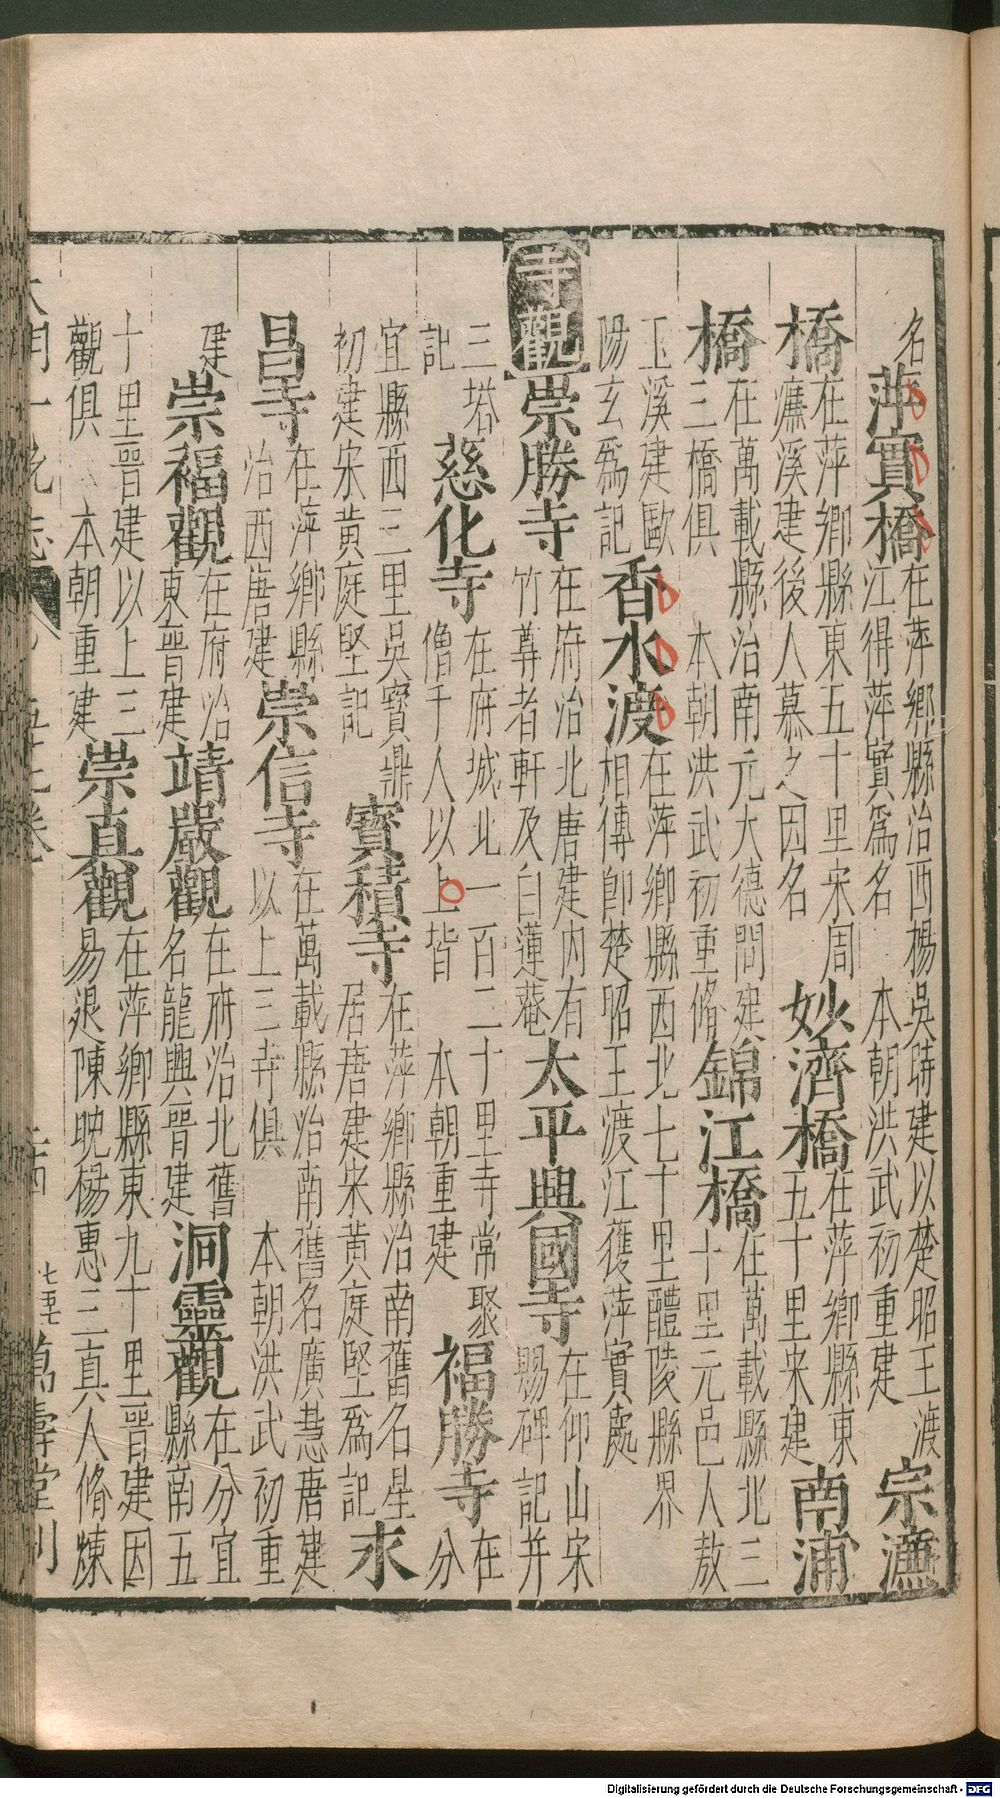 名萍實橋在萍鄉縣治西楊吳時建以楚昭王渡江得萍實爲名 本朝洪武初重建宗濂
橋在萍鄉縣東五十里宋周濂溪建後人慕之因名妙濟橋在萍鄉縣東五十里宋建南浦
橋在萬載縣治南元大德間建三橋俱 本朝洪武初重脩錦江橋在萬載縣北三十里元邑人敖
玉溪建歐陽玄爲記香水渡在萍鄉縣西北七十里醴陵縣界相傳卽楚昭王渡江獲萍實處
寺觀崇勝寺在府治北唐建內有竹尊者軒及白蓮菴太平興國寺在仰山宋賜碑記并
三塔記慈化寺在府城北一百二十里寺常聚僧千人以上皆 本朝重建福勝寺在分
宜縣西三里吳寶鼎初建宋黃庭堅記寶積寺在萍鄉縣治南舊名星居唐建宋黃庭堅爲記永
昌寺在萍鄉縣治西唐建崇信寺在萬載縣治南舊名廣慧唐建以上三寺俱 本朝洪武初重
建崇福觀在府治東晉建靖嚴觀在府治北舊名龍興晉建洞靈觀在分宜縣南五
十里晉建以上三觀俱 本朝重建崇真觀在萍鄉縣東九十里晉建因易退陳晚楊惠三真人脩煉
萬壽堂刊
Digitalisierung gefördert durch die Deutsche Forschungsgemeinschaft - DFG